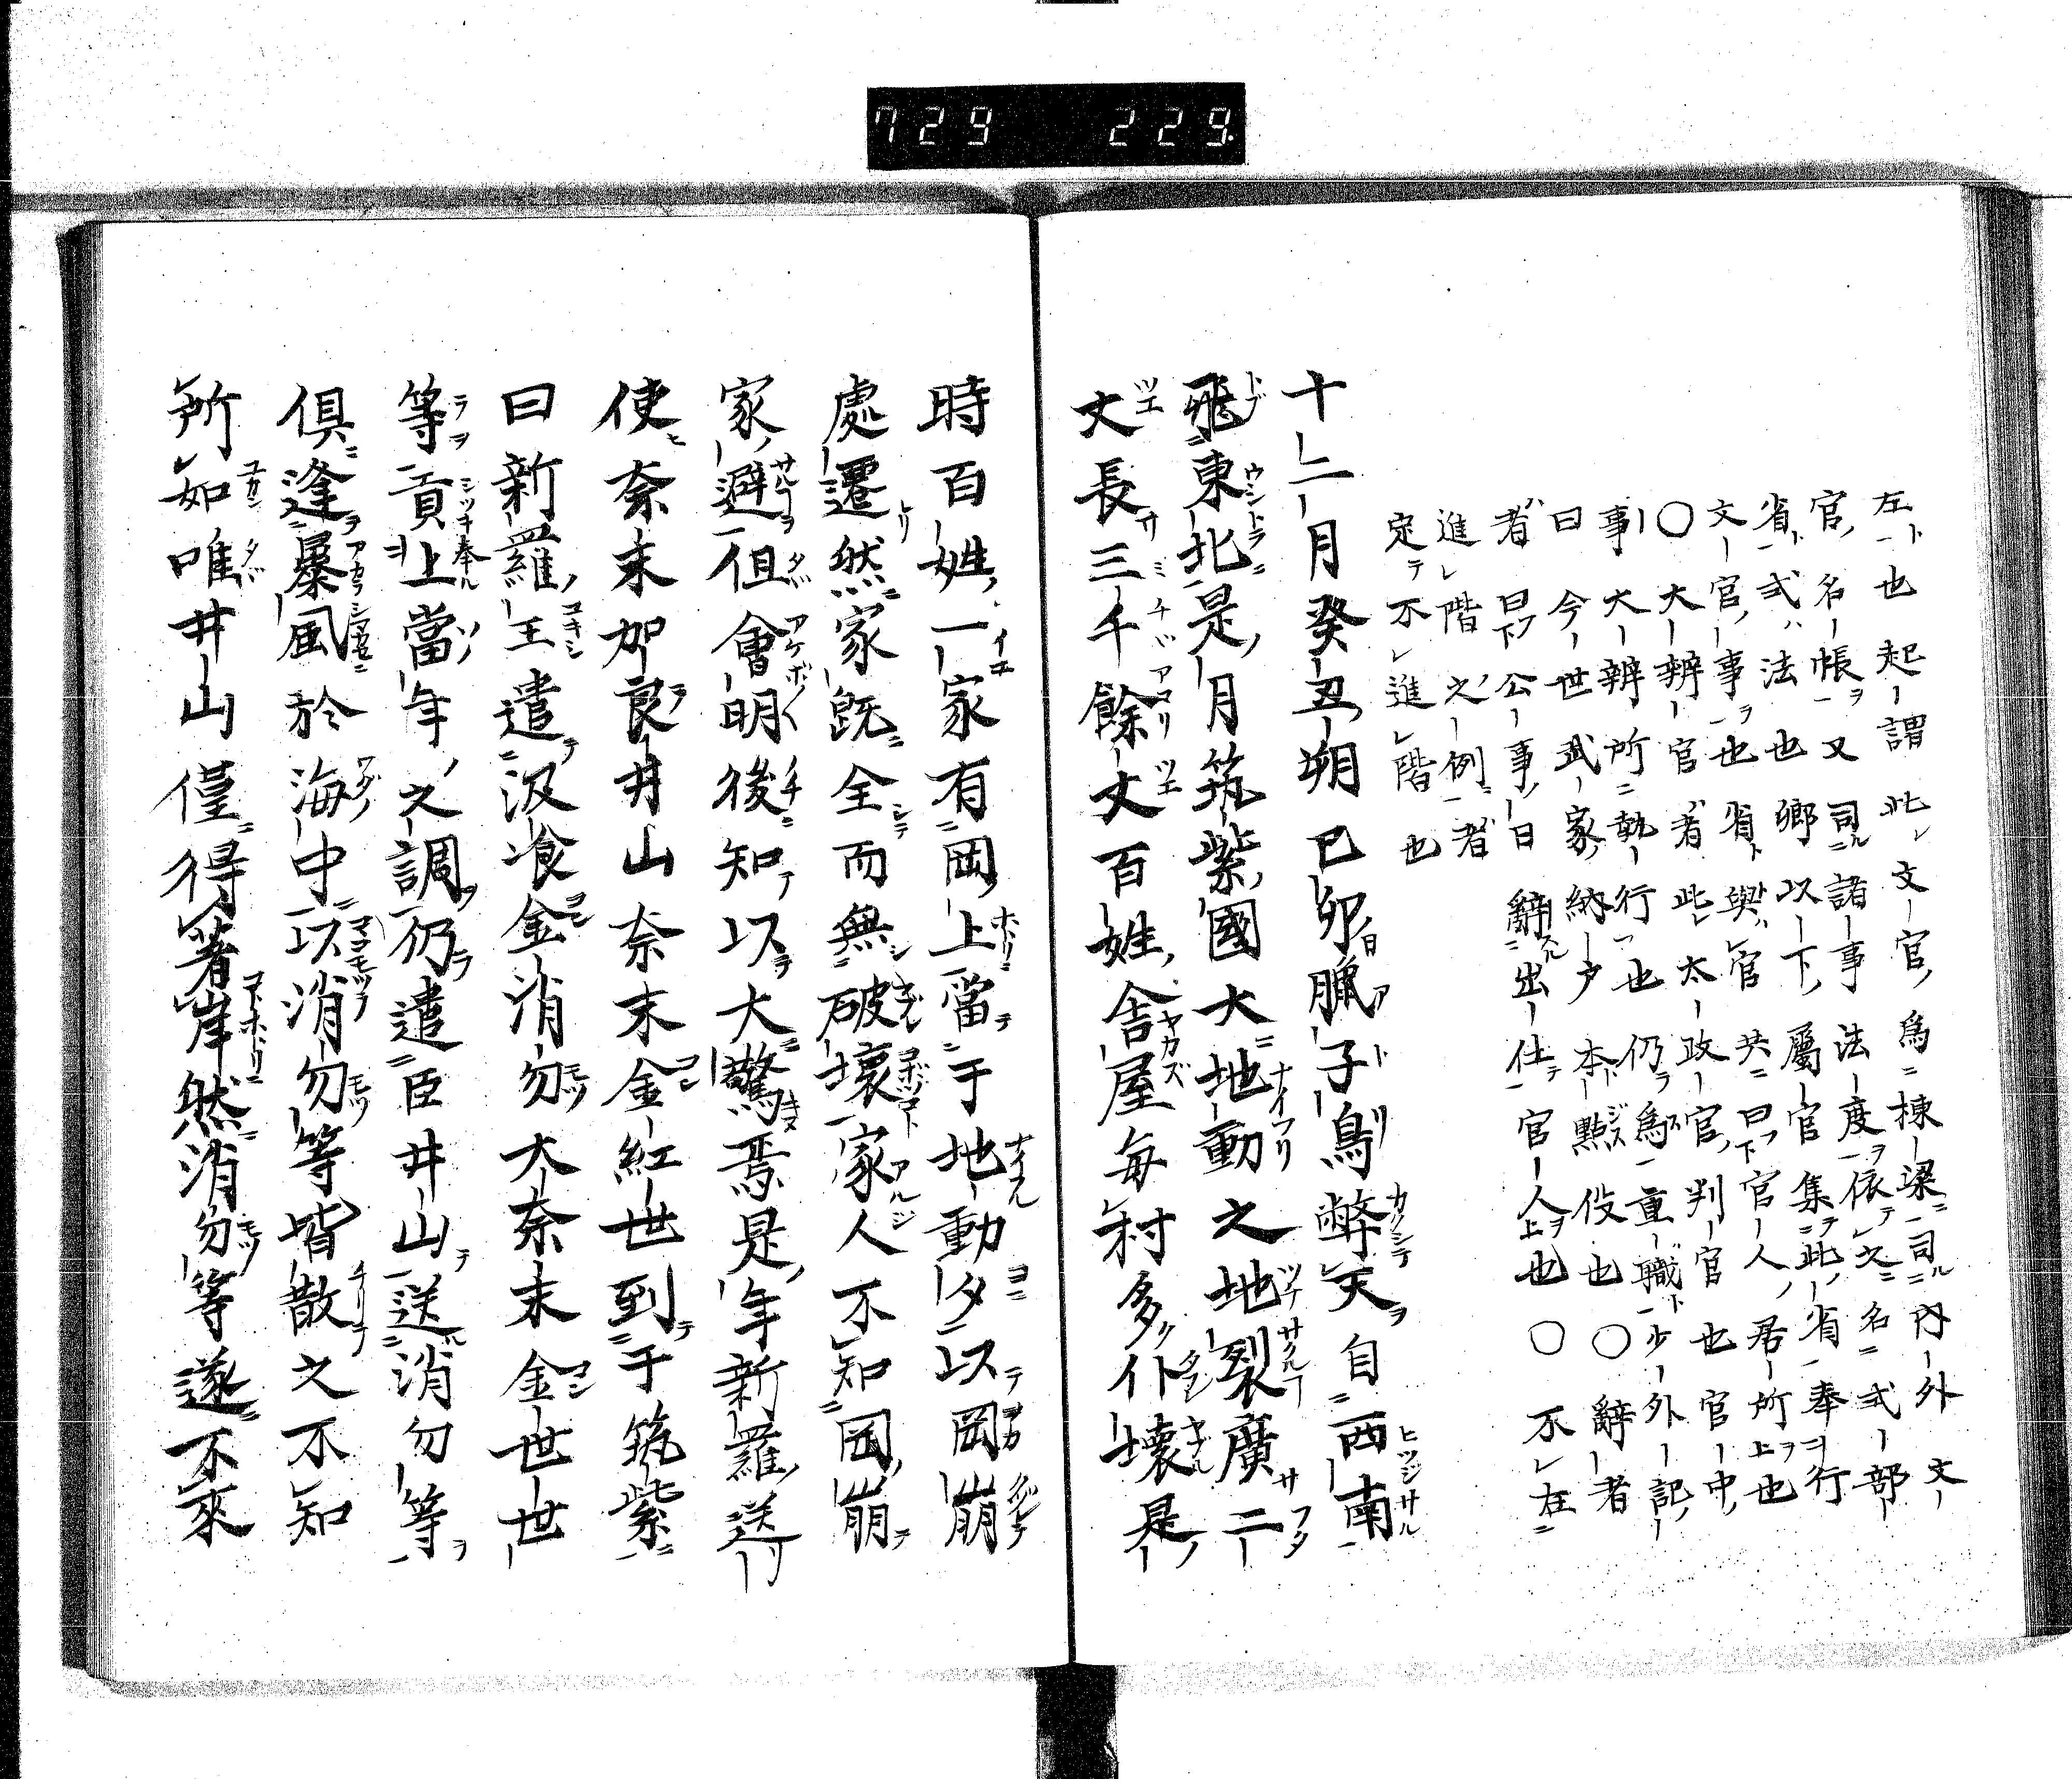 729 229
左也起謂此文官爲棟梁司內外文
官名帳又司諸事法度依文名式部
省式法也卿以下屬官集此省奉行
文官事也省與官共曰官人居所也
○大辨官者此太政官判官也官中
事大辨所執行也仍爲重職少外記
曰今世武家納戸本點役也○辭者
者曰公事日辭出仕官人也○不在
進階之例者
定不進階也
十二月癸丑朔己卯臘子鳥弊天自西南
飛東北是月筑紫國大地動之地裂廣二
丈長三千餘丈百姓舎屋毎村多仆壞是
時百姓一家有岡上當于地動夕以岡崩
處遷然家既全而無破壞家人不知岡崩
家避但會明後知以大驚焉是年新羅送
使奈末加良井山奈末金紅世到于筑紫
曰新羅王遣汲飡金消勿大奈末金世世
等貢上當年之調仍遣臣井山送消勿等
俱逢暴風於海中以消勿等皆散之不知
所如唯井山僅得著岸然消勿等遂不來